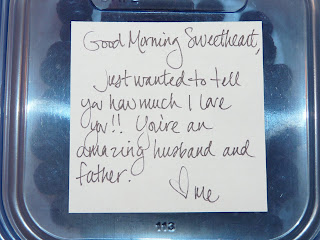 Good Morning Sweetheart,
Just wanted to tell
you how much I love
you!! You're an
amazing husband and
father.
♡ me
113